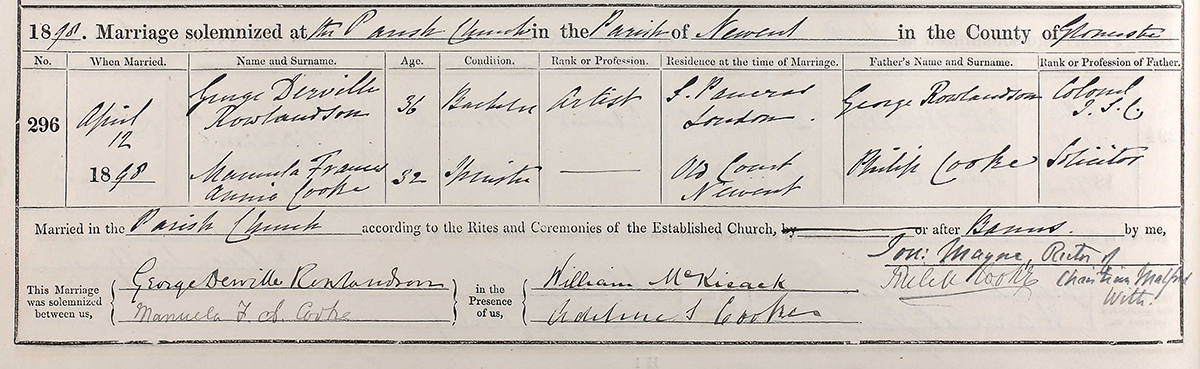 1898. Marriage solemnized at the Parish Church in the Parish of Newent in the County of Gloucester
No. When Married. Name and Surname. Age. Condition. Rank or Profession. Residence at the time of Marriage. Father's Name and Surname. Rank or Profession of Father.
296
April
12
1898
George Derville
Rowlandson
36
Bachelor
Artist
S. Pancras
London.
George Rowlandson
Colonel
I. S. C.
Manuela Frances
Annie Cooke
32
Spinster
Old Court
Newent
Philip Cooke
Solicitor
Married in the Parish Church according to the Rites and Ceremonies of the Established Church, by or after Banns by me,
Jon: Mayne, Rector of
Christian Malford
Wilts.
This Marriage
was solemnized
between us,
George Derville Rowlandson
Manuela F. A. Cooke
in the
Presence
of us,
William McKisack
Adeline S Cooke
Philip Cooke